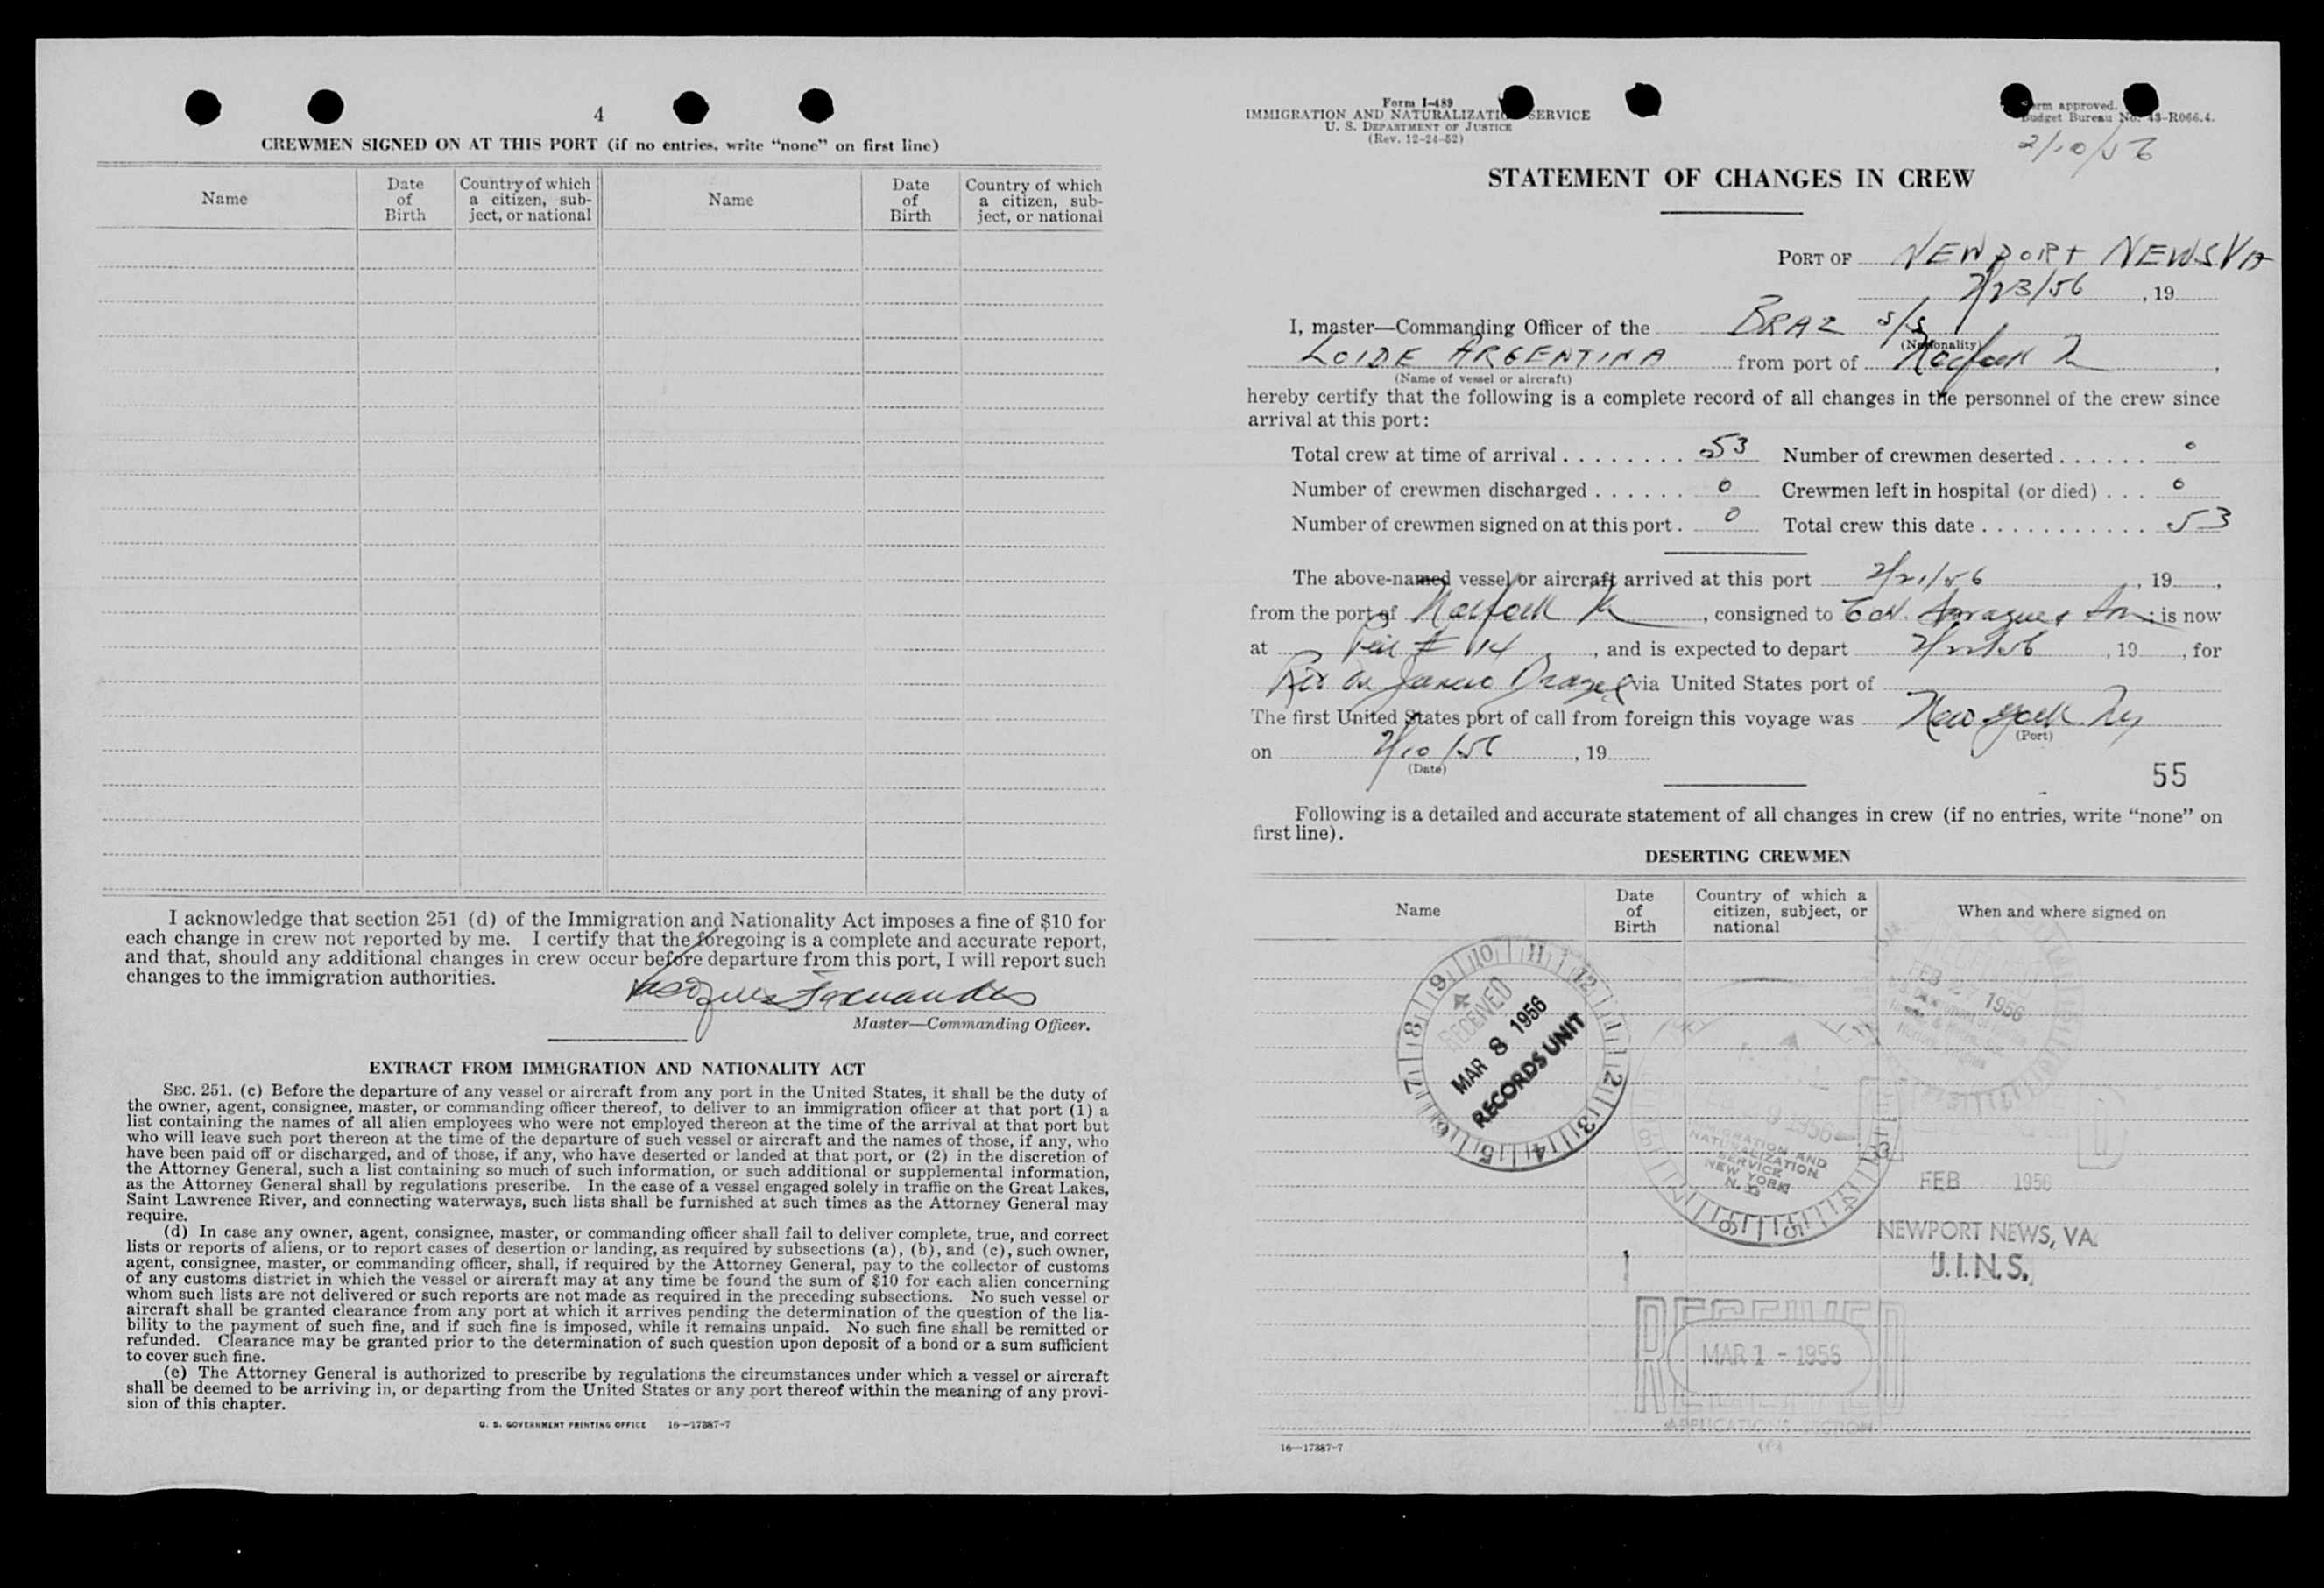 4
CREWMEN SIGNED ON AT THIS PORT (if no entries, write “none” on first line)
Name
Date of Birth
Country of which a citizen, sub-ject, or national
Name
Date of Birth
Country of which a citizen, sub-ject, or national
I acknowledge that section 251 (d) of the Immigration and Nationality Act imposes a fine of $10 for
each change in crew not reported by me. I certify that the foregoing is a complete and accurate report,
and that, should any additional changes in crew occur before departure from this port, I will report such
changes to the immigration authorities.
Fernandes
Master—Commanding Officer.
EXTRACT FROM IMMIGRATION AND NATIONALITY ACT
SEC. 251. (c) Before the departure of any vessel or aircraft from any port in the United States, it shall be the duty of
the owner, agent, consignee, master, or commanding officer thereof, to deliver to an immigration officer at that port (1) a
list containing the names of all alien employees who were not employed thereon at the time of the arrival at that port but
who will leave such port thereon at the time of the departure of such vessel or aircraft and the names of those, if any, who
have been paid off or discharged, and of those, if any, who have deserted or landed at that port, or (2) in the discretion of
the Attorney General, such a list containing so much of such information, or such additional or supplemental information,
as the Attorney General shall by regulations prescribe. In the case of a vessel engaged solely in traffic on the Great Lakes,
Saint Lawrence River, and connecting waterways, such lists shall be furnished at such times as the Attorney General may
require.
(d) In case any owner, agent, consignee, master, or commanding officer shall fail to deliver complete, true, and correct
lists or reports of aliens, or to report cases of desertion or landing, as required by subsections (a), (b), and (c), such owner,
agent, consignee, master, or commanding officer, shall, if required by the Attorney General, pay to the collector of customs
of any customs district in which the vessel or aircraft may at any time be found the sum of $10 for each alien concerning
whom such lists are not delivered or such reports are not made as required in the preceding subsections. No such vessel or
aircraft shall be granted clearance from any port at which it arrives pending the determination of the question of the lia-
bility to the payment of such fine, and if such fine is imposed, while it remains unpaid. No such fine shall be remitted or
refunded. Clearance may be granted prior to the determination of such question upon deposit of a bond or a sum sufficient
to cover such fine.
(e) The Attorney General is authorized to prescribe by regulations the circumstances under which a vessel or aircraft
shall be deemed to be arriving in, or departing from the United States or any port thereof within the meaning of any provi-
sion of this chapter.
U. S. GOVERNMENT PRINTING OFFICE 16—17387-7
Form I-489
IMMIGRATION AND NATURALIZATION SERVICE
U. S. DEPARTMENT OF JUSTICE
(Rev. 12-24-52)
Form approved.
Budget Bureau No. 43-R066.4.
2/10/56
STATEMENT OF CHANGES IN CREW
PORT OF NEWPORT NEWS VA
2/23/56, 19
I, master—Commanding Officer of the BRAZ S/S
(Nationality)
LOIDE ARGENTINA from port of Norfolk
(Name of vessel or aircraft)
hereby certify that the following is a complete record of all changes in the personnel of the crew since
arrival at this port:
Total crew at time of arrival 53 Number of crewmen deserted 0
Number of crewmen discharged 0 Crewmen left in hospital (or died) 0
Number of crewmen signed on at this port 0 Total crew this date 53
The above-named vessel or aircraft arrived at this port 2/21/56, 19,
from the port of Norfolk, consigned to Sprague & Son; is now
at Pier # 14, and is expected to depart 2/22/56, 19, for
Rio de Janeiro Brazil via United States port of
The first United States port of call from foreign this voyage was New York Ny
(Port)
on 2/10/56, 19
(Date)
55
Following is a detailed and accurate statement of all changes in crew (if no entries, write “none” on
first line).
DESERTING CREWMEN
Name
Date of Birth
Country of which a citizen, subject, or national
When and where signed on
RECEIVED
MAR 8 1956
RECORDS UNIT
FEB 1956
1956
IMMIGRATION AND
NATURALIZATION
SERVICE
NEW YORK
N. Y.
FEB 1956
NEWPORT NEWS, VA.
U.I.N.S.
RECEIVED
MAR 1 - 1956
APPLICATIONS SECTION
16—17387-7